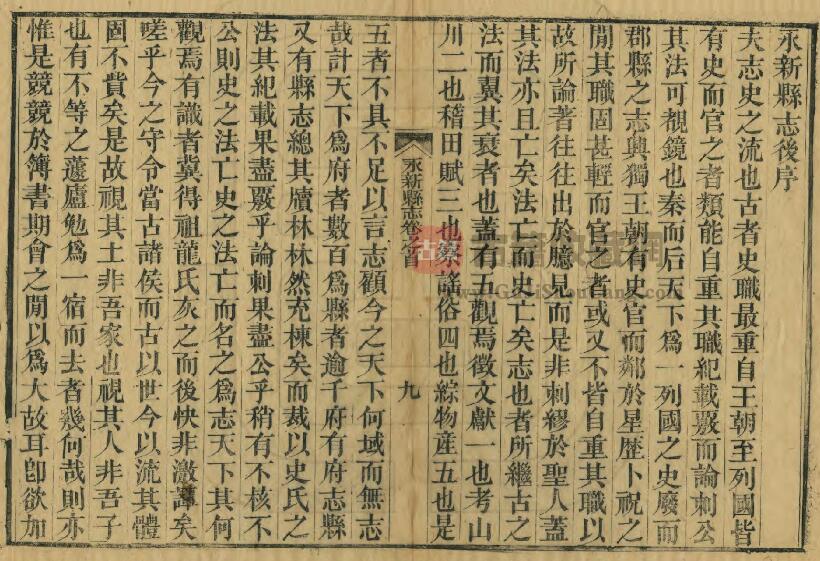 永新縣志後序
夫志史之流也古者史職最重自王朝至列國皆
有史而官之者類能自重其職紀載覈而論刺公
其法可覩鏡也秦而后天下為一列國之史廢而
郡縣之志興獨王朝有史官而鄰於星歷卜祝之
閒其職固甚輕而官之者或又不皆自重其職以
故所論著往往出於臆見而是非刺繆於聖人蓋
其法亦且亡矣法亡而史亡矣志也者所繼古之
法而翼其衰者也蓋有五觀焉徵文獻一也考山
川二也稽田賦三也察謠俗四也綜物產五也是
永新縣志卷之首
九
五者不具不足以言志顧今之天下何域而無志
哉計天下爲府者數百爲縣者逾千府有府志縣
又有縣志總其牘林林然充棟矣而裁以史氏之
法其紀載果盡覈乎論刺果盡公乎稍有不核不
公則史之法亡史之法亡而名之爲志天下其何
觀焉有識者冀得祖龍氏灰之而後快非激譚矣
嗟乎今之守令當古諸侯而古以世今以流其體
固不貴矣是故視其土非吾家也視其人非吾子
也有不等之蘧廬勉爲一宿而去者幾何哉則亦
惟是兢兢於簿書期會之閒以爲大故耳卽欲加